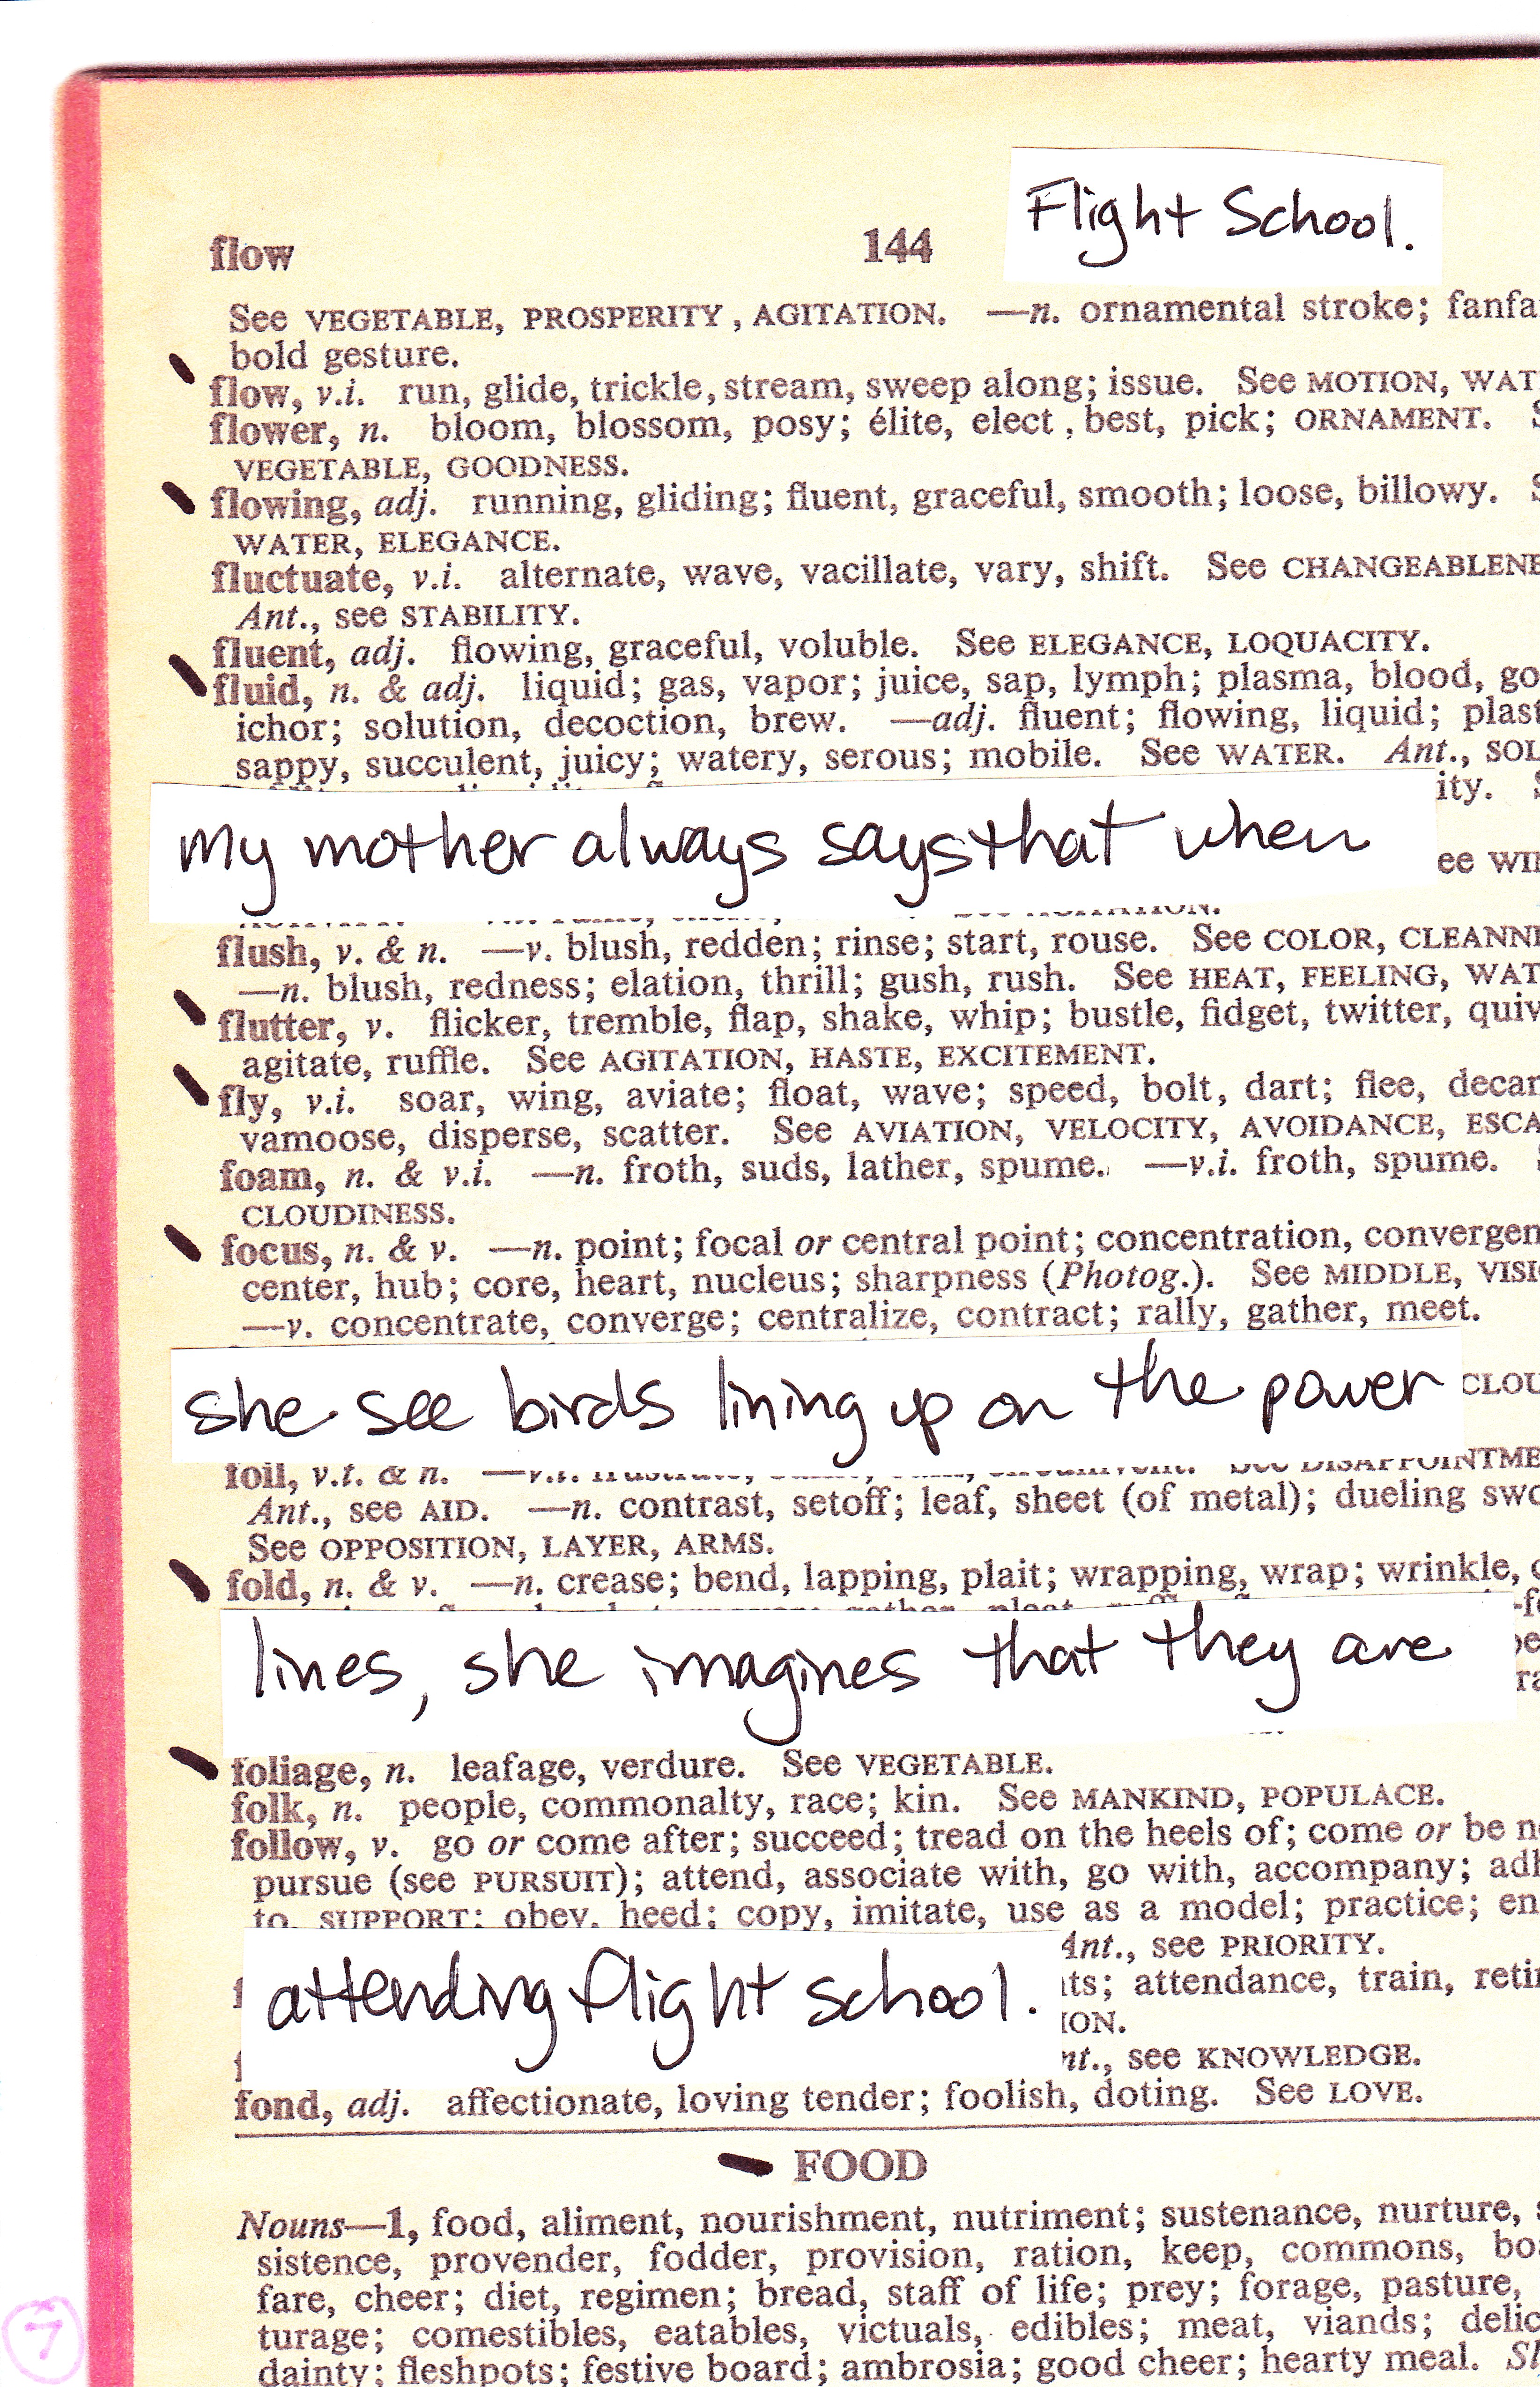 Flight School.
flow 144
See VEGETABLE, PROSPERITY, AGITATION. —n. ornamental stroke;
bold gesture.
flow, v.i. run, glide, trickle, stream, sweep along; issue. See MOTION,
flower, n. bloom, blossom, posy; élite, elect, best, pick; ORNAMENT.
VEGETABLE, GOODNESS.
flowing, adj. running, gliding; fluent, graceful, smooth; loose, billowy.
WATER, ELEGANCE.
fluctuate, v.i. alternate, wave, vacillate, vary, shift. See
Ant., see STABILITY.
fluent, adj. flowing, graceful, voluble. See ELEGANCE, LOQUACITY.
fluid, n. & adj. liquid; gas, vapor; juice, sap, lymph; plasma, blood,
ichor; solution, decoction, brew. —adj. fluent; flowing, liquid;
sappy, succulent, juicy; watery, serous; mobile. See WATER. Ant.,
my mother always says that when
flush, v. & n. —v. blush, redden; rinse; start, rouse. See COLOR,
—n. blush, redness; elation, thrill; gush, rush. See HEAT, FEELING,
flutter, v. flicker, tremble, flap, shake, whip; bustle, fidget, twitter,
agitate, ruffle. See AGITATION, HASTE, EXCITEMENT.
fly, v.i. soar, wing, aviate; float, wave; speed, bolt, dart; flee,
vamoose, disperse, scatter. See AVIATION, VELOCITY, AVOIDANCE,
foam, n. & v.i. —n. froth, suds, lather, spume. —v.i. froth, spume.
CLOUDINESS.
focus, n. & v. —n. point; focal or central point; concentration,
center, hub; core, heart, nucleus; sharpness (Photog.). See MIDDLE,
—v. concentrate, converge; centralize, contract; rally, gather, meet.
she see birds lining up on the power
foil, v.t. & n.
Ant., see AID. —n. contrast, setoff; leaf, sheet (of metal); dueling
See OPPOSITION, LAYER, ARMS.
fold, n. & v. —n. crease; bend, lapping, plait; wrapping, wrap; wrinkle,
lines, she imagines that they are
foliage, n. leafage, verdure. See VEGETABLE.
folk, n. people, commonalty, race; kin. See MANKIND, POPULACE.
follow, v. go or come after; succeed; tread on the heels of; come or be
pursue (see PURSUIT); attend, associate with, go with, accompany;
to, SUPPORT; obey, heed; copy, imitate, use as a model; practice;
Ant., see PRIORITY.
attendance, train,
attending flight school.
see KNOWLEDGE.
fond, adj. affectionate, loving tender; foolish, doting. See LOVE.
FOOD
Nouns—1, food, aliment, nourishment, nutriment; sustenance, nurture,
sistence, provender, fodder, provision, ration, keep, commons,
fare, cheer; diet, regimen; bread, staff of life; prey; forage, pasture,
turage; comestibles, eatables, victuals, edibles; meat, viands;
dainty; fleshpots; festive board; ambrosia; good cheer; hearty meal.
7